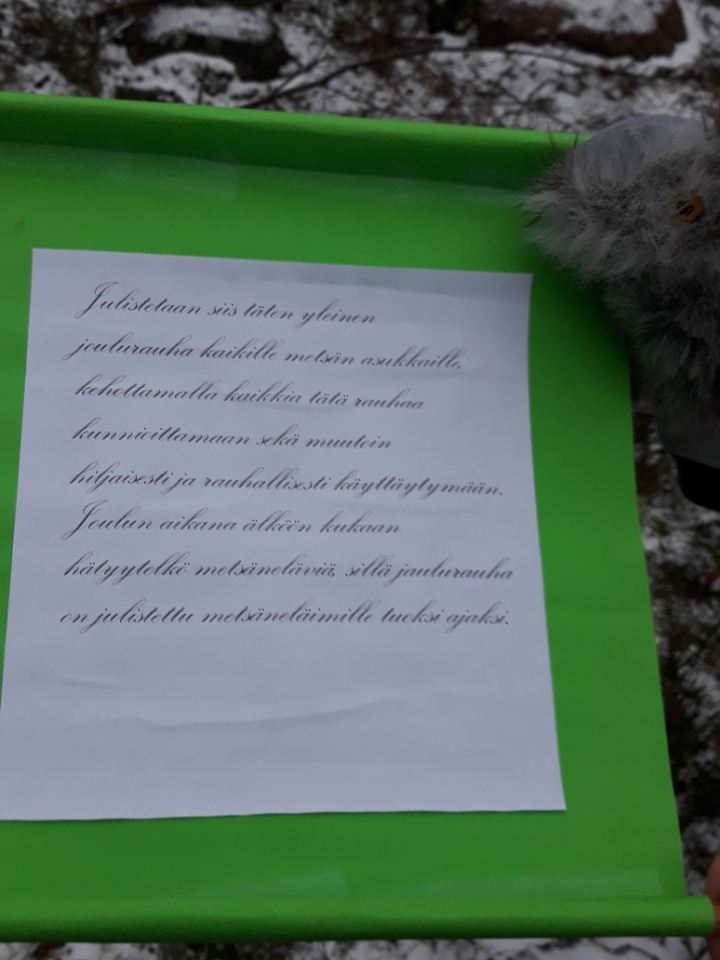 Julistetaan siis täten yleinen
joulurauha kaikille metsän asukkaille,
kehottamalla kaikkia tätä rauhaa
kunnioittamaan sekä muutoin
hiljaisesti ja rauhallisesti käyttäytymään.
Joulun aikana älköön kukaan
hätyytelkö metsäneläviä, sillä jaulurauha
on julistettu metsäneläimille tuoksi ajaksi.